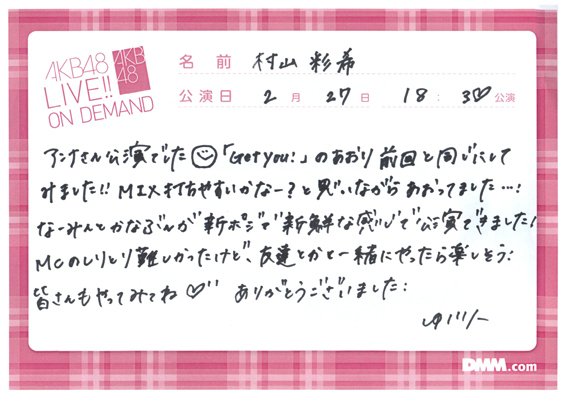 AKB48
LIVE!!
ON DEMAND
AKB
48
名前 村山彩希
公演日 2月27日 18:30公演
アンナさん公演でした☺「Get you!」のあおり前回と同じにして
みました!! MIX打ちやすいかなー?と思いながらあおってました…!
なーみんとかなぶんが新ポジで新鮮な感じで公演できました!
MCのしりとり難しかったけど、友達とかと一緒にやったら楽しそう:
皆さんもやってみてね♡ ありがとうございました:
DMM.com